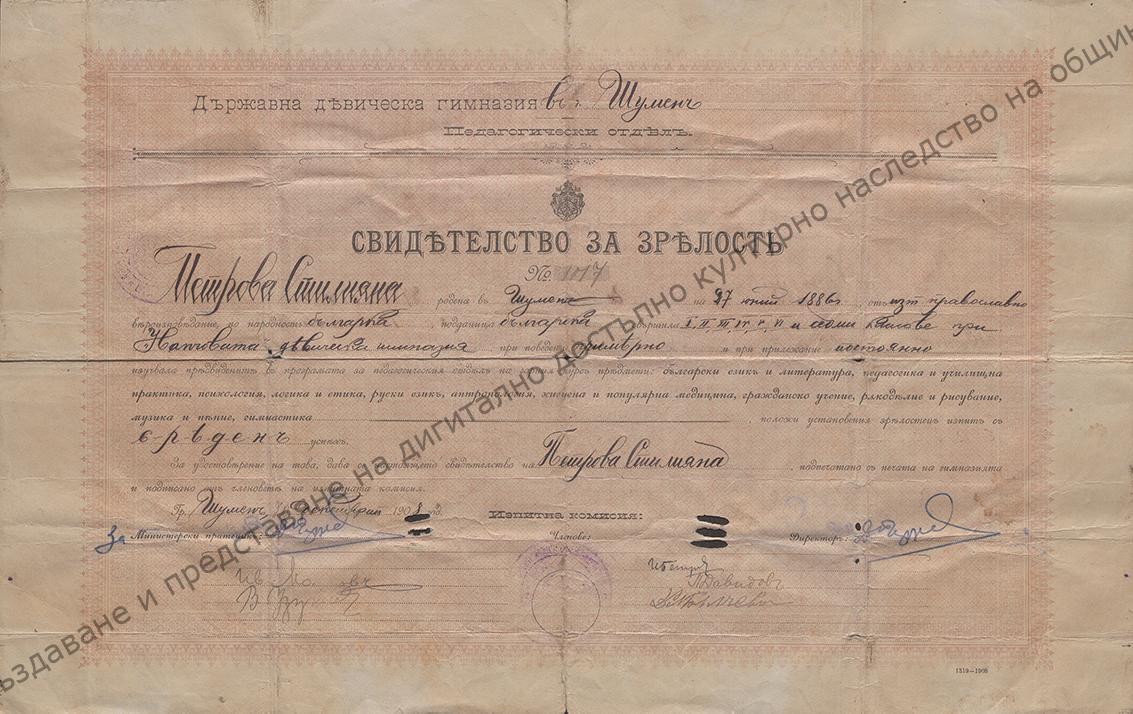 Държавна дѣвическа гимназия въ Шуменъ
Педагогически отдѣлъ.
СВИДѢТЕЛСТВО ЗА ЗРѢЛОСТЬ
№ 1017
Петрова Стилияна родена въ Шуменъ на 27 юний 1886 г. отъ изт. православно
вѣроизповѣдание, по народность българка, поданица българска свършила I, II, III, IV, V, VI и седми класове при
дѣвическа гимназия при поведение примѣрно и при прилежание постоянно
изучвала прѣдвиденитѣ въ програмата за педагогическия отдѣлъ на прѣдмети: български езикъ и литература, педагогика и училищна
практика, психология, логика и етика, руски езикъ, антропология, хигиена и популярна медицина, гражданско учение, рѫкодѣлие и рисуване,
музика и пѣние, гимнастика, положи установения зрѣлостенъ изпитъ съ
срѣденъ успѣхъ.
За удостовѣрение на това, дава се настоящето свидѣтелство на Петрова Стилияна, подпечатано съ печата на гимназията
и подписано отъ членоветѣ на изпитната комисия.
Гр. Шуменъ, 190 год.
Изпитна комисия:
За Министерски пратеникъ:
Членове:
Директоръ:
П. Давидовъ
1319—1908
създаване и представяне на дигитално достъпно културно наследство на общин